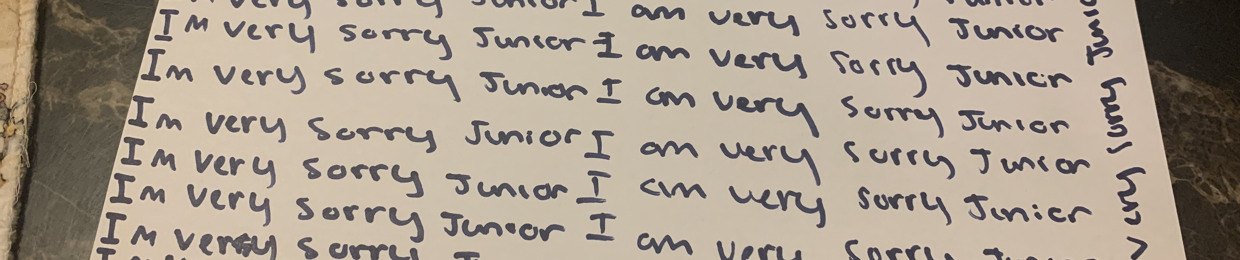 very sorry Junior I am very sorry Junior
Im very sorry Junior I am very sorry Junior
Im very sorry Junior I am very sorry Junior
Im very sorry Junior I am very sorry Junior
Im very sorry Junior I am very sorry Junior
Im very sorry Junior I am very sorry Junior
Im very sorry